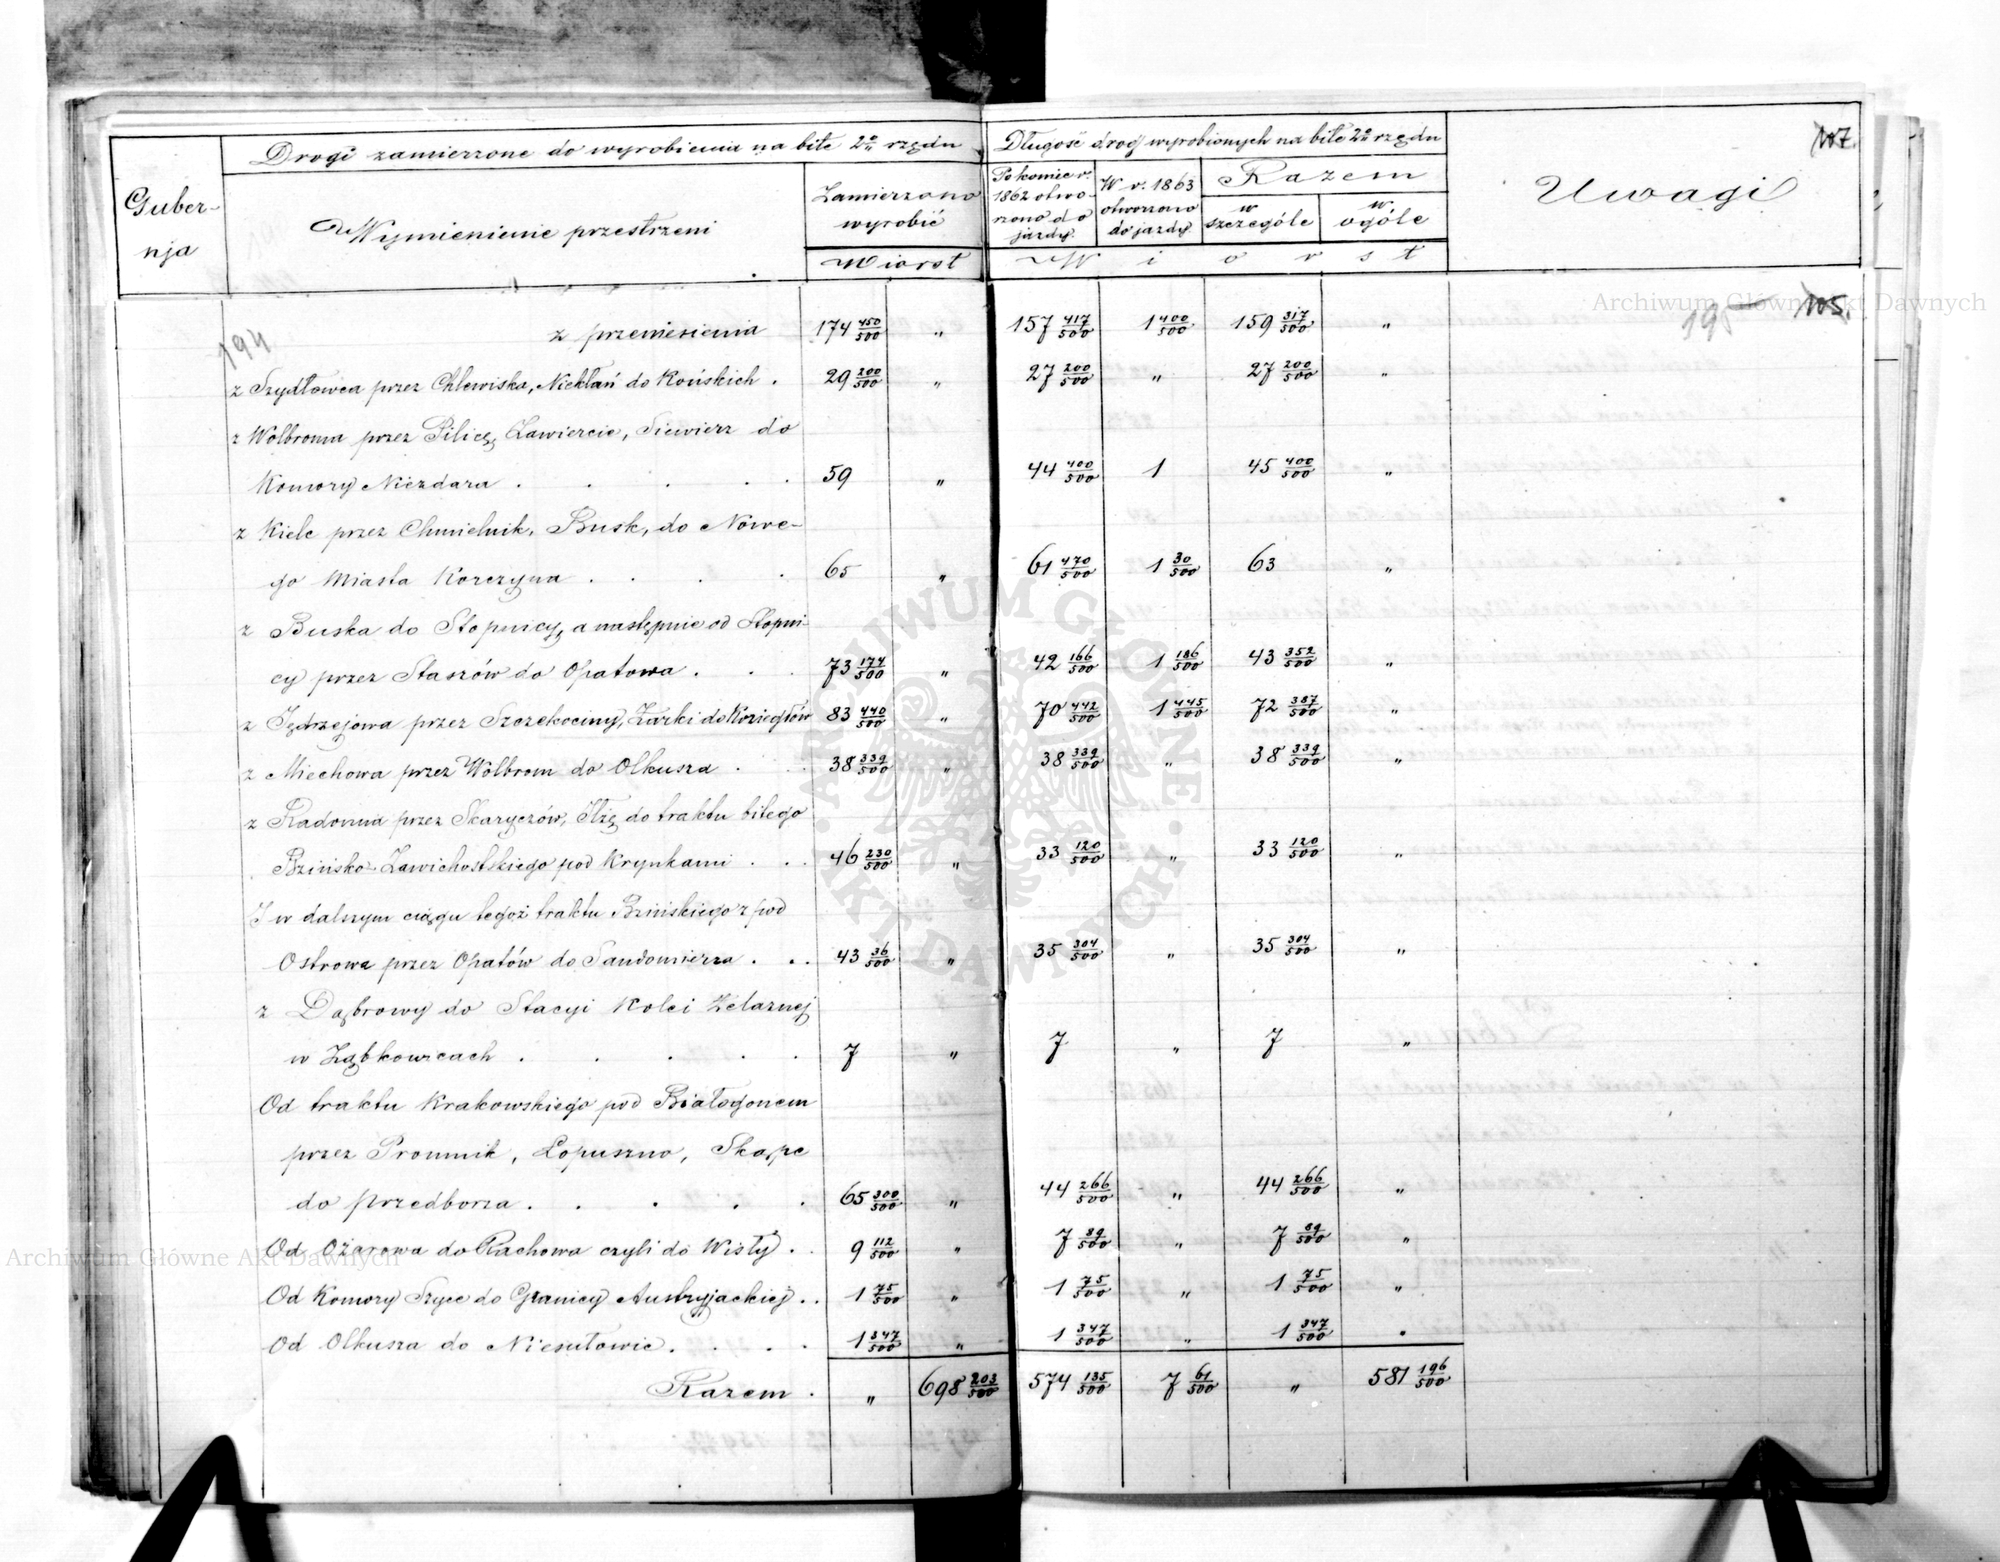 Drogi zamierzone do wyrobienia na bite 2º rzędu
Długość dróg wyrobionych na bite 2º rzędu
107.
Guber-
nja
Wymienienie przestrzeni
Zamierzono
wyrobić
Wiorst
Po koniec r.
1862 otwo-
rzono do
jazdy
W r. 1863
otworzono
do jazdy
Razem
w
szczególe
w
ogóle
W i o r s t
Uwagi
194
195
105.
z przeniesienia 174 450/500 " 157 417/500 1 400/500 159 317/500 "
z Szydłowca przez Chlewiska, Niekłań do Końskich . 29 200/500 " 27 200/500 " 27 200/500 "
z Wolbromia przez Pilicę, Zawiercie, Siewierz do
Komory Niezdara . . . . . 59 " 44 400/500 1 45 400/500 "
z Kielc przez Chmielnik, Busk, do Nowe-
go Miasta Korczyna . . . 65 " 61 470/500 1 30/500 63 "
z Buska do Stopnicy, a następnie od Stopni-
cy przez Staszów do Opatowa . . . 73 174/500 " 42 166/500 1 186/500 43 352/500 "
z Jędrzejowa przez Szczekociny, Żarki do Koziegłów 83 440/500 " 70 442/500 1 445/500 72 387/500 "
z Miechowa przez Wolbrom do Olkusza . . 38 339/500 " 38 339/500 " 38 339/500 "
z Radomia przez Skaryszów, Iłżę do traktu bitego
Bzińsko-Zawichostskiego pod Krynkami . . . 46 230/500 " 33 120/500 " 33 120/500 "
I w dalszym ciągu tegoż traktu Bzińskiego z pod
Ostrowa przez Opatów do Sandomierza . . . 43 36/500 " 35 304/500 " 35 304/500 "
z Dąbrowy do Stacyi Kolei Żelaznej
w Ząbkowicach . . . . . 7 " 7 " 7 "
Od traktu Krakowskiego pod Białogonem
przez Promnik, Łopuszno, Skąpe
do Przedborza . . . . . 65 300/500 " 44 266/500 " 44 266/500 "
Od Ożarowa do Rachowa czyli do Wisły . . 9 112/500 " 7 89/500 " 7 89/500 "
Od Komory Szyce do Granicy Austryjackiej . . 1 75/500 " 1 75/500 " 1 75/500 "
Od Olkusza do Niesułowic . . . . 1 347/500 " 1 347/500 " 1 347/500 "
Razem . " 698 203/500 574 135/500 7 61/500 " 581 196/500
Archiwum Główne Akt Dawnych
Archiwum Główne Akt Dawnych
ARCHIWUM GŁÓWNE AKT DAWNYCH